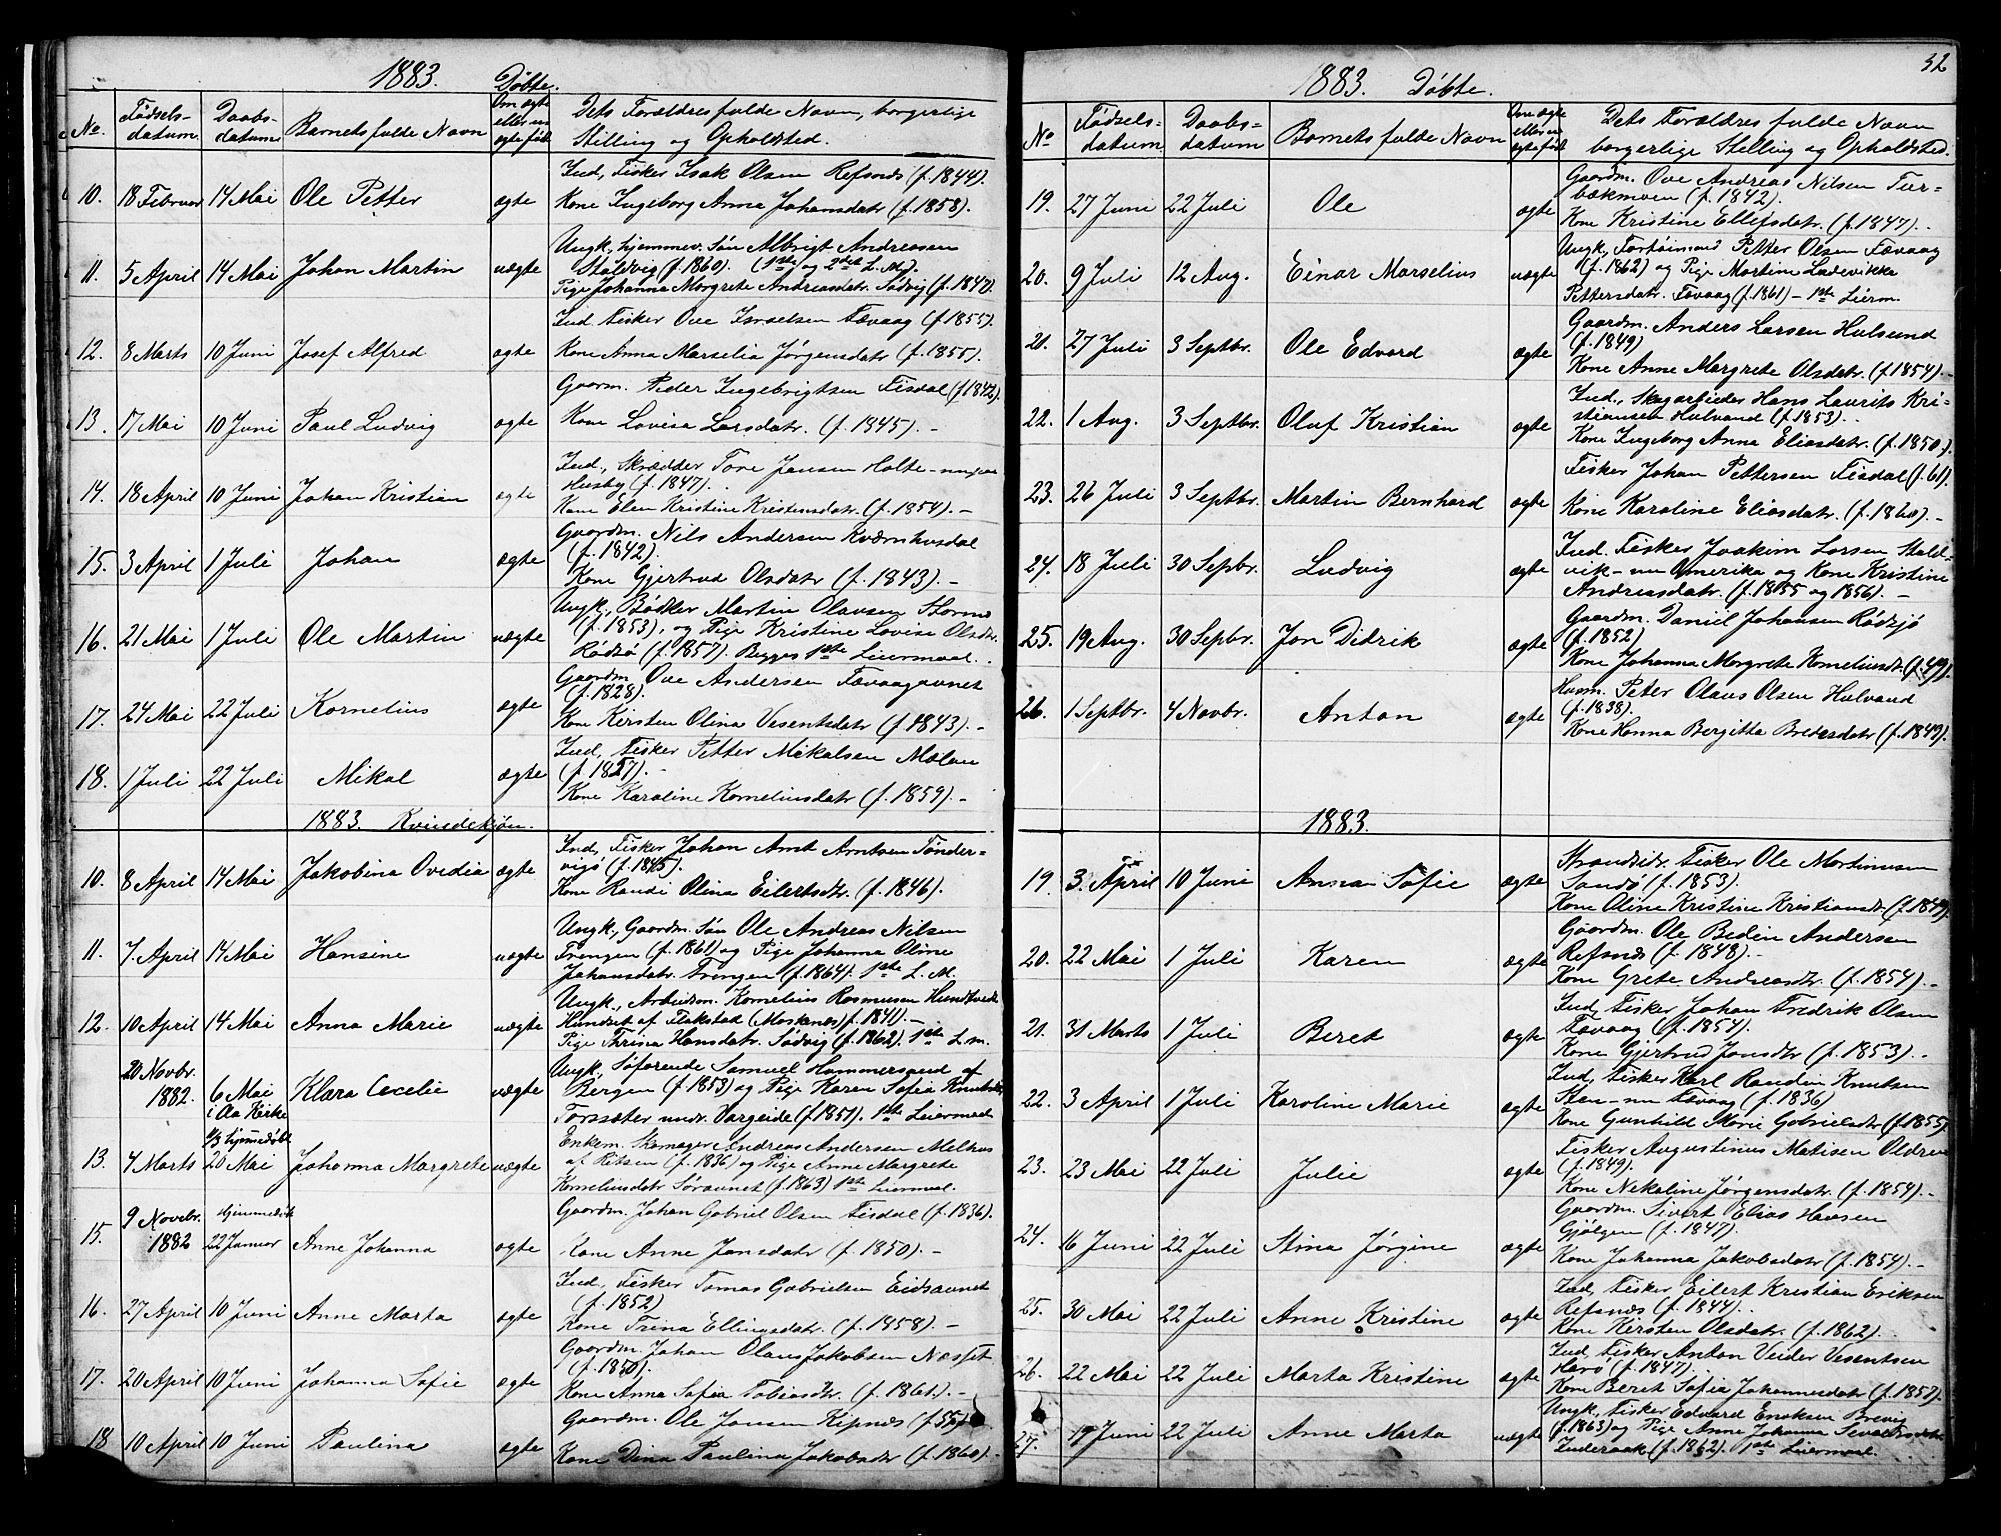 1883.
Døbte.
No.
Fødsels-
datum.
Daabs-
datum
Barnets fulde Navn
Om ægte
eller u-
ægte født
Dets Forældres fulde Navn, borgerlige
Stilling og Opholdsted.
10. 18 Februar 14 Mai Ole Petter ægte
Ind, Fisker Isak Olsen Refsnds (f. 1844).
Kone Ingeborg Anna Johansdatr (f. 1858).
11. 5 April 14 Mai Johan Martin uægte
Ungk., hjemmev. Søn Albrigt Andreasen
Stoldvig (f. 1860). (1ste og 2det L.M).
Pige Johanna Morgrete Andreasdatr. Sødvig (f. 1847).
12. 8 Marts 10 Juni Josef Alfred ægte
Ind. Fisker Ove Israelsen Fævaag (f. 1855).
Kone Anna Marselia Jørgensdatr (f. 1855).
13. 17 Mai 10 Juni Paul Ludvig ægte
Gaardm. Peder Ingebrigtsen Fisdal (f. 1842).
Kone Lovise Larsdatr. (f. 1845). -
14. 18 April 10 Juni Johan Kristian ægte
Ind., Skrædder Tore Jansen Holte - nu paa
Husby (f. 1847).
Kone Elen Kristine Kristensdatr. (f. 1854). -
15. 3 April 1 Juli Johan ægte
Gaardm. Nils Andersen Kværnhusdal
(f. 1842).
Kone Gjertrud Olsdatr (f. 1843). -
16. 21 Mai 1 Juli Ole Martin uægte
Ungk., Bødker Martin Olavsen Storms
(f. 1853), og Pige Kristine Lovise Olsdtr.
Rødsø (f. 1857). Begges 1ste Leiermaal.
17. 24 Mai 22 Juli Kornelius ægte
Gaardm. Ove Andersen Fævaagavnet
(f. 1828).
Kone Kirsten Olina Vesentsdatr (f. 1843). -
18. 1 Juli 22 Juli Mikal ægte
Ind, Fisker Petter Mikalsen Mælan
(f. 1857). -
Kone Karoline Korneliusdatr (f. 1859). -
1883. Kvindekjøn.
10. 8 April 14 Mai Jakobina Ovedia ægte
Ind, Fisker Johan Arnt Arntsen Tønder-
vigø (f. 1845).
Kone Randi Olina Eilertsdtr. (f. 1846).
11. 7. April 14 Mai Hansine uægte
Ungk., Gaardm. Søn Ole Andreas Nilsen
Trengen (f. 1861) og Pige Johanna Oline
Johansdatr. Trengen (f. 1864). 1ste L. M.
12. 10 April 14 Mai Anna Marie uægte
Ungk., Arbeidsm. Kornelius Rasmusen Hundtvedt
Hundset af Flakstad (Moskenæs) f. 1841). -
Pige Thrina Hansdatr. Sødvig (f. 1862). 1ste L.m.
20 Novbr.
1882.
6 Mai
i Aa Kirke
Klara Cecelie uægte
Ungk, Søfarende Samuel Hammersand af
Bergen (f. 1853) og Pige Karen Sofie Knutsdtr
Forssæter undr. Vargeide (f. 1851). 1ste Leiermaal
13. 4 Marts
1/3 hjemmedøbt
20 Mai Johanna Margrete uægte
Enkem. Skomager Andreas Andersen Melhus
af Ritsen (f. 1836) og Pige Anne Margrete
Korneliusdatr Søravnet (f. 1863) 1ste Leiermaal.
15. 9 Novebr.
1882
hjemmedøbt
22 Januar Anne Johanna ægte
Gaardm. Johan Gabriel Olsen Fisdal (f. 1836).
Kone Anne Jonsdatr (f. 1850). -
16. 27 April 10 Juni Anne Marta ægte
Ind, Fisker Tomas Gabrielsen Eidsavnet
(f. 1852)
Kone Trina Ellingsdatr. (f. 1858). -
17. 20 April 10 Juni Johanna Sofie ægte
Gaardm. Johan Olaus Jakobsen Næsset
(f. 1850).
Kone Anna Sofia Tobiasdtr. (f. 1861). -
18 10 April 10 Juni Paulina ægte
Gaardm. Ole Jonsen Kipnæs (f. 55).
Kone Dina Paulina Jakobsdtr (f. 1860). -
32
1883. Døbte.
No
Fødsels-
datum.
Daabs-
datum
Barnets fulde Navn
Om ægte
eller u-
ægte født
Dets Forældres fulde Navn
borgerlige Stilling og Opholdsted.
19. 27 Juni 22 Juli Ole ægte
Gaardm. Ove Andreas Nilsen Tver-
bækmoen (f. 1842).
Kone Kristine Ellefsdatr. (f. 1847).
20. 9 Juli 12 Aug. Einar Marselius uægte
Ungk, Fortøimand Petter Olsen Fævaag
(f. 1862) og Pige Martine Ludevikka
Pettersdatr. Fævaag (f. 1861) - 1ste Leierm.
21. 27 Juli 3 Septbr. Ole Edvard ægte
Gaardm. Anders Larsen Hulsund
(f. 1849)
Kone Anne Margrete Olsdatr. (f. 1854). -
22. 1 Aug. 3 Septbr. Oluf Kristian ægte
Ind., Skogarbeider Hans Laurits Kri-
stiansen Hulvand (f. 1853).
Kone Ingeborg Anna Eliasdatr. (f. 1850.)
23. 26 Juli 3 Septbr. Martin Bernhard ægte
Fisker Johan Pettersen Fisdal (f. 61).
Kone Karoline Eliasdatr. (f. 1860). -
24. 18 Juli 30 Sepbr. Ludvig ægte
Ind. Fisker Joakim Larsen Stald-
vik - nu Amerika og Kone Kristine
Andreasdatr. (f. 1855 og 1856). -
25. 19 Aug. 30 Sepbr. Jon Didrik ægte
Gaardm. Daniel Johansen Rødsjø
(f. 1852)
Kone Johanna Morgrete Korneliusdtr. (f. 49).
26. 1 Septbr. 4 Novbr. Anton ægte
Husm. Peter Olaus Olsen Hulvand
(f. 1838).
Kone Hanna Bergitta Bredesdatr (f. 1849).
1883.
19. 3. April 10 Juni Anna Sofie ægte
Strandsidr. Fisker Ole Mortinusen
Sandø (f. 1853).
Kone Oline Kristine Kristiansdtr. (f. 1849).
20. 22 Mai 1 Juli Karen ægte
Gaardm. Ole Bedin Andersen
Refsnds (f. 1848). -
Kone Grete Andreasdtr. (f. 1854). -
21. 31 Marts 1 Juli Beret ægte
Ind, Fisker Johan Fredrik Olsen
Fævaag (f. 1854).
Kone Gjertrud Jonsdtr (f. 1853). -
22. 3 April 1 Juli Karoline Marie ægte
Ind, Fisker Karl Randin Knutsen
Sten - nu Fævaag (f. 1836)
Kone Gunhild Marie Gabrielsdtr (f. 1855)
23. 23 Mai 22 Juli Julie ægte
Fisker Augustinus Matisen Oldren
(f. 1849).
Kone Nekoline Jørgensdatr. (f. 1854). -
24. 16 Juni 22 Juli Stina Jørgine ægte
Gaardm. Sivert Elias Hansen
Gjølgen (f. 1847).
Kone Johanna Jakobsdatr (f. 1854). -
25. 30 Mai 22 Juli Anne Kristine ægte
Ind, Fisker Eilert Kristian Eriksen
Refsnæs (f. 1844).
Kone Kirsten Olsdatr. (f. 1862).
26. 22 Mai 22 Juli Marta Kristine ægte
Ind, Fisker Anton Veider Vesentsen
Harø (f. 1847).
Kone Beret Sofie Johannesdatr (f. 1857).
27. 17 Juni 22 Juli Anne Marta uægte
Ungk, Fisker Edvard Enoksen Brevig
(f. 1863) og Pige Anne Johanna
Inderaak (f. 1862). 1ste Leiermaal.